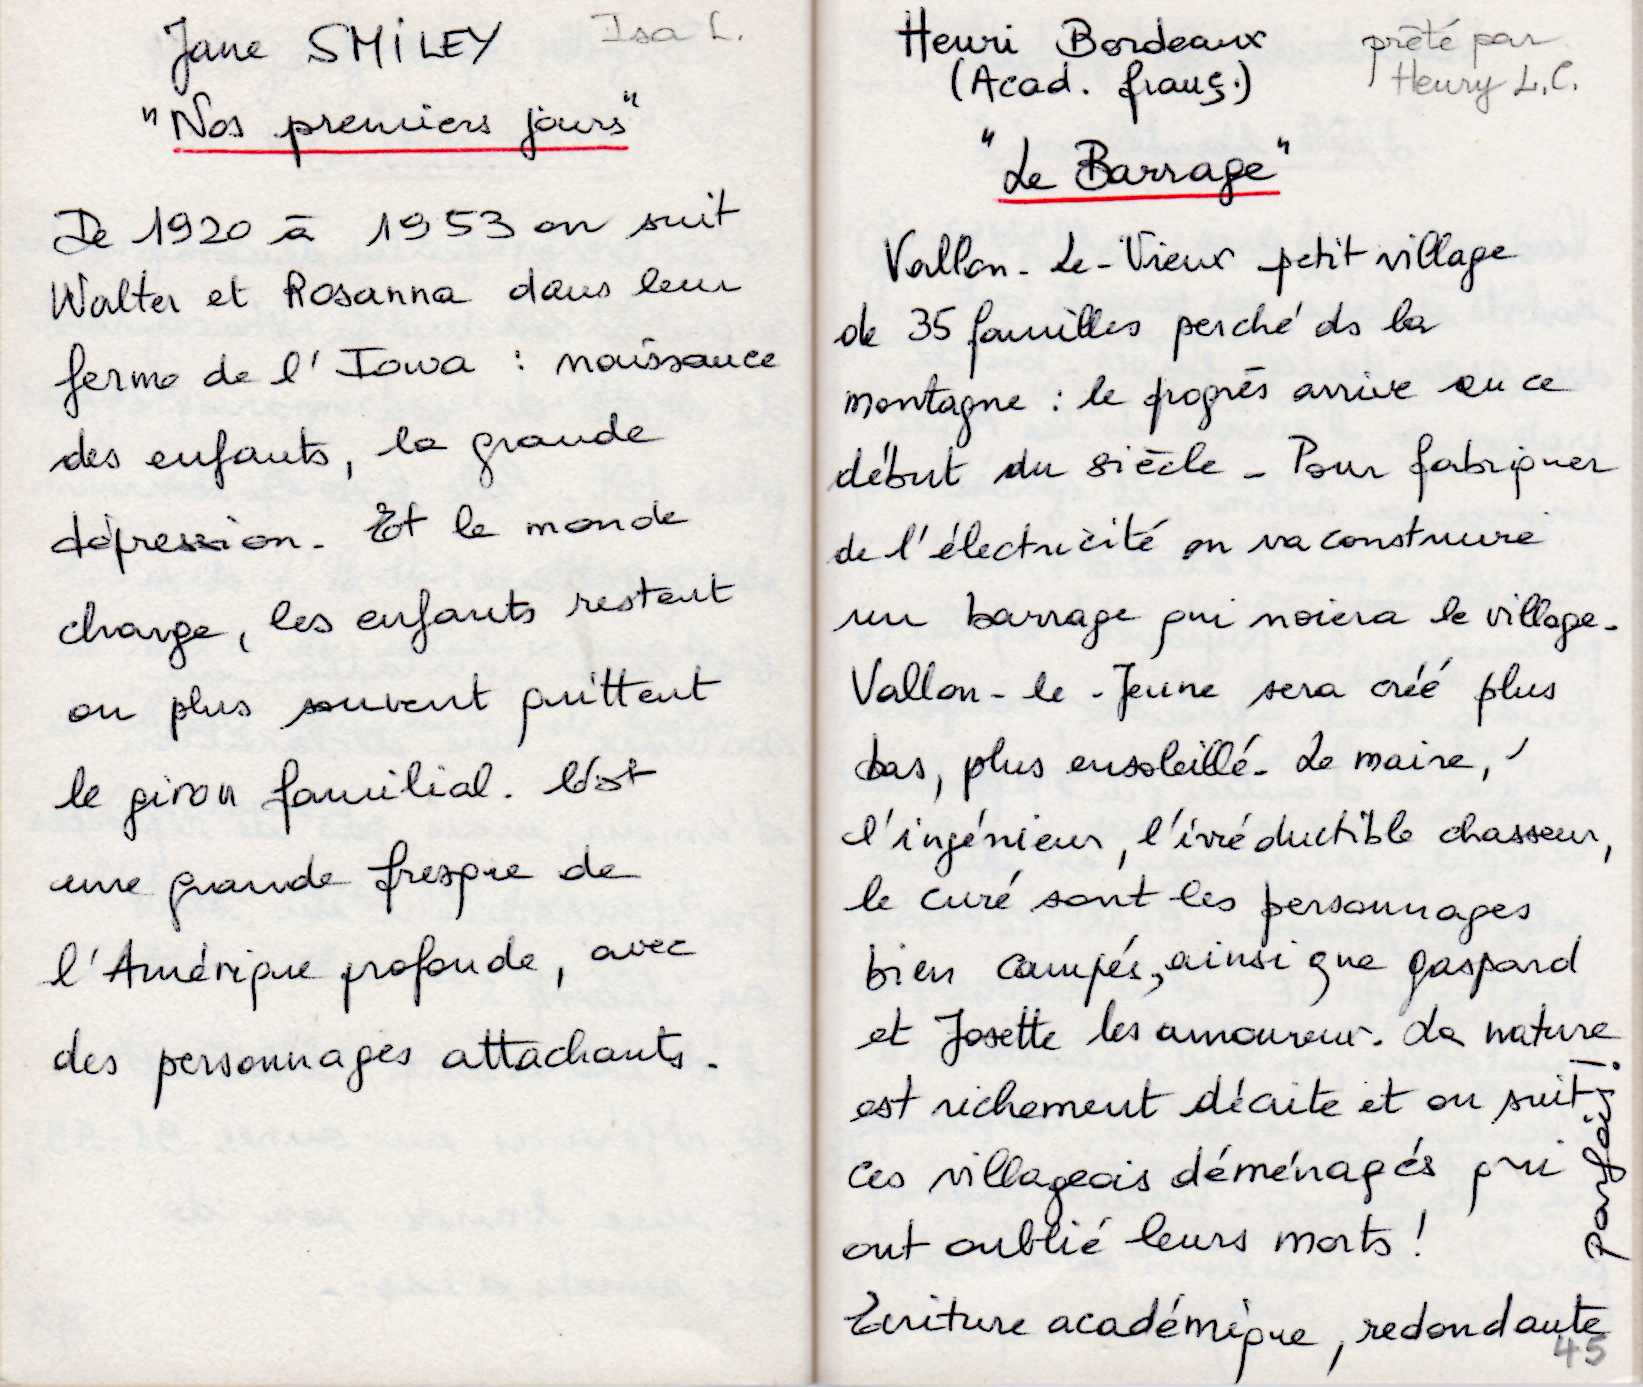 Jane SMiLEY Isa L.
"Nos premiers jours"
De 1920 à 1953 on suit
Walter et Rosanna dans leur
ferme de l'Iowa : naissance
des enfants, la grande
dépression. Et le monde
change, les enfants restent
ou plus souvent quittent
le giron familial. C'est
une grande fresque de
l'Amérique profonde, avec
des personnages attachants.
Henri Bordeaux prêté par
(Acad. franç.) Henry L.C.
"Le Barrage"
Vallon-Le-Vieux petit village
de 35 familles perché ds la
montagne : le progrès arrive en ce
début du siècle - Pour fabriquer
de l'électricité on va construire
un barrage qui noiera le village -
Vallon-le-Jeune sera créé plus
bas, plus ensoleillé - Le maire,
l'ingénieur, l'irréductible chasseur,
le curé sont les personnages
bien campés, ainsi que Gaspard
et Josette les amoureux. La nature
est richement décrite et on suit
ces villageois déménagés qui
ont oublié leurs morts !
Ecriture académique, redondante
parfois !
45